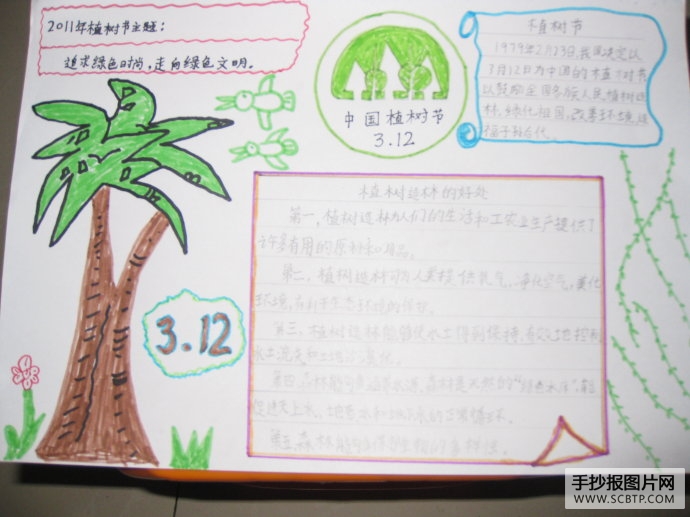 2011年植树节主题:
追求绿色时尚,走向绿色文明。
中国植树节
3.12
植树节
1979年2月23日,我国决定以
3月12日为中国的植树节
以鼓励全国各族人民植树造
林,绿化祖国,改善环境,造
福子孙后代。
3.12
植树造林的好处
第一,植树造林为人们的生活和工农业生产提供了
许多有用的原材和用品。
第二,植树造林可为人类提供氧气,净化空气,美化
环境,有利于生态环境的保护。
第三,植树造林能够使水土得到保持,有效地控制
水土流失和土地沙漠化。
第四,森林能 涵养水源,森林是天然的“绿色水库”,能
促进天上水、地表水和地下水的正常循环。
第五,森林能 保护生物的多样性。
手抄报图片网
WWW.SCBTP.COM